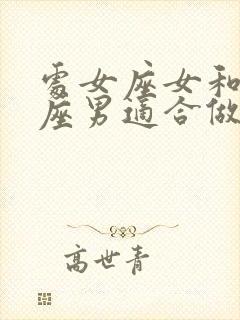 處女座女和
座男適合做
高世青